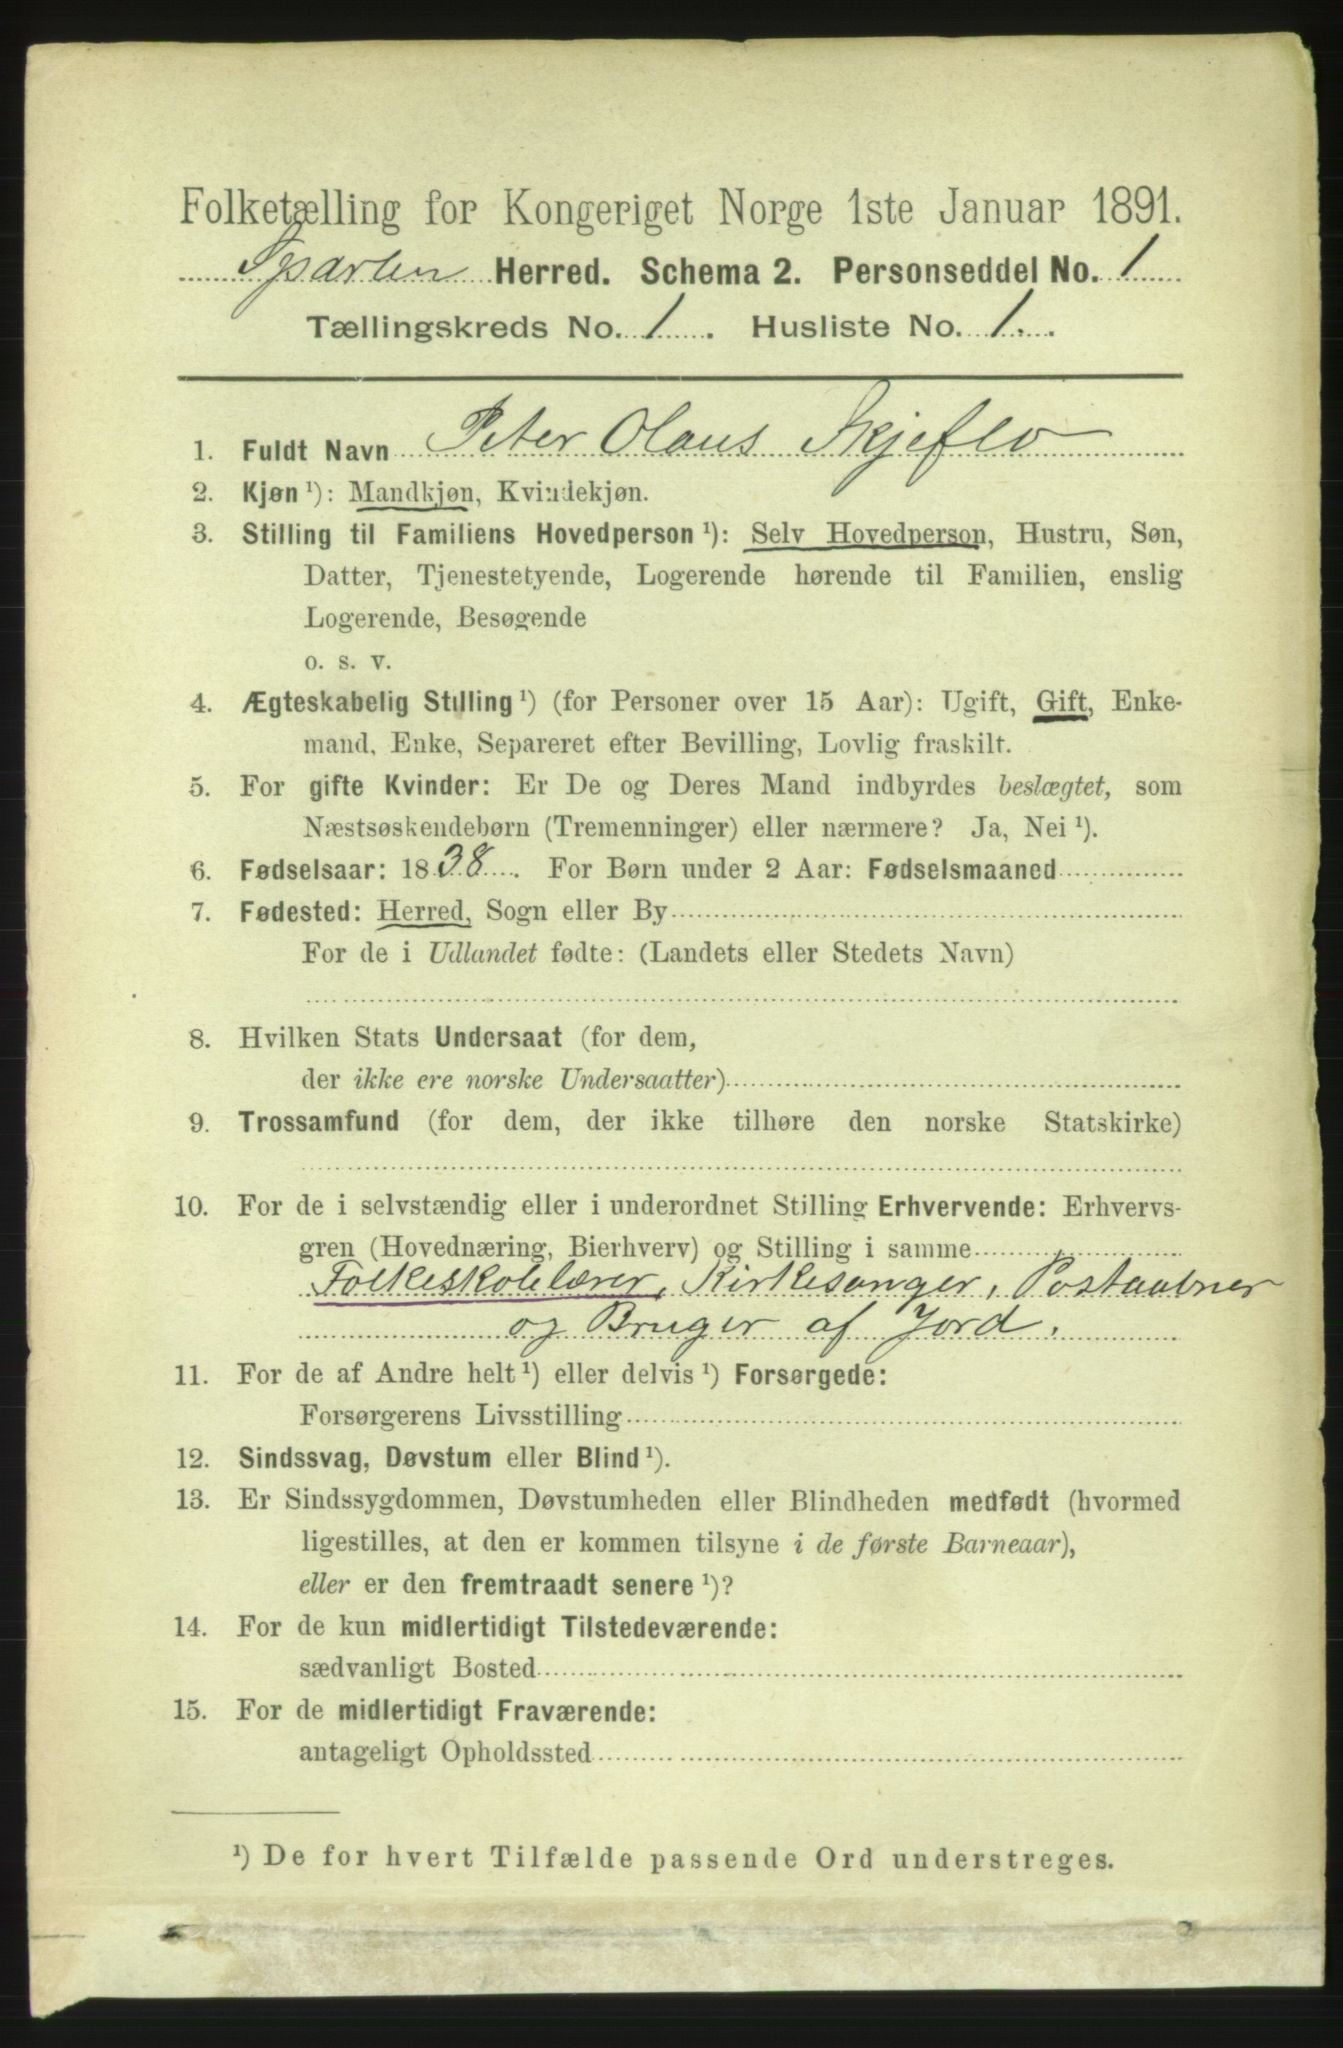 Folketælling for Kongeriget Norge 1ste Januar 1891.
Sparben Herred. Schema 2. Personseddel No. 1
Tællingskreds No. 1. Husliste No. 1.
1. Fuldt Navn Peter Olaus Skjeflo
2. Kjøn ¹): Mandkjøn, Kvindekjøn.
3. Stilling til Familiens Hovedperson ¹): Selv Hovedperson, Hustru, Søn,
Datter, Tjenestetyende, Logerende hørende til Familien, enslig
Logerende, Besøgende
o. s. v.
4. Ægteskabelig Stilling ¹) (for Personer over 15 Aar): Ugift, Gift, Enke-
mand, Enke, Separeret efter Bevilling, Lovlig fraskilt.
5. For gifte Kvinder: Er De og Deres Mand indbyrdes beslægtet, som
Næstsøskendebørn (Tremenninger) eller nærmere? Ja, Nei ¹).
6. Fødselsaar: 1838. For Børn under 2 Aar: Fødselsmaaned
7. Fødested: Herred, Sogn eller By
For de i Udlandet fødte: (Landets eller Stedets Navn)
8. Hvilken Stats Undersaat (for dem,
der ikke ere norske Undersaatter)
9. Trossamfund (for dem, der ikke tilhøre den norske Statskirke)
10. For de i selvstændig eller i underordnet Stilling Erhvervende: Erhvervs-
gren (Hovednæring, Bierhverv) og Stilling i samme
Folkeskolelærer, Kirkesanger, Postaabner
og Bruger af Jord.
11. For de af Andre helt ¹) eller delvis ¹) Forsørgede:
Forsørgerens Livsstilling
12. Sindssvag, Døvstum eller Blind ¹).
13. Er Sindssygdommen, Døvstumheden eller Blindheden medfødt (hvormed
ligestilles, at den er kommen tilsyne i de første Barneaar),
eller er den fremtraadt senere ¹)?
14. For de kun midlertidigt Tilstedeværende:
sædvanligt Bosted
15. For de midlertidigt Fraværende:
antageligt Opholdssted
¹) De for hvert Tilfælde passende Ord understreges.